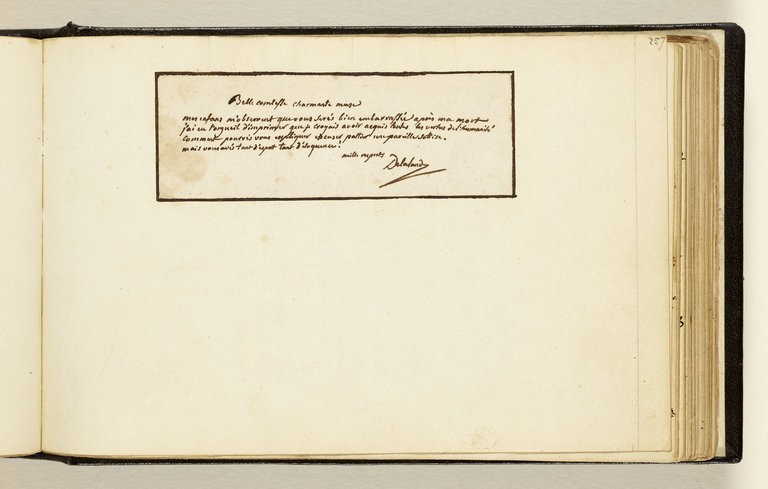 267
Belle comtesse charmante muse
mes enfans m'observent que vous serés bien embarrassée après ma mort
j'ai eu l'orgueil d'imprimer que je croyais avoir acquis toutes les vertus de l'humanité
comment pourrés vous expliquer penser pallier une pareille sotise.
mais vous avés tant d'esprit tant d'éloquence!
mille respects
Delalande